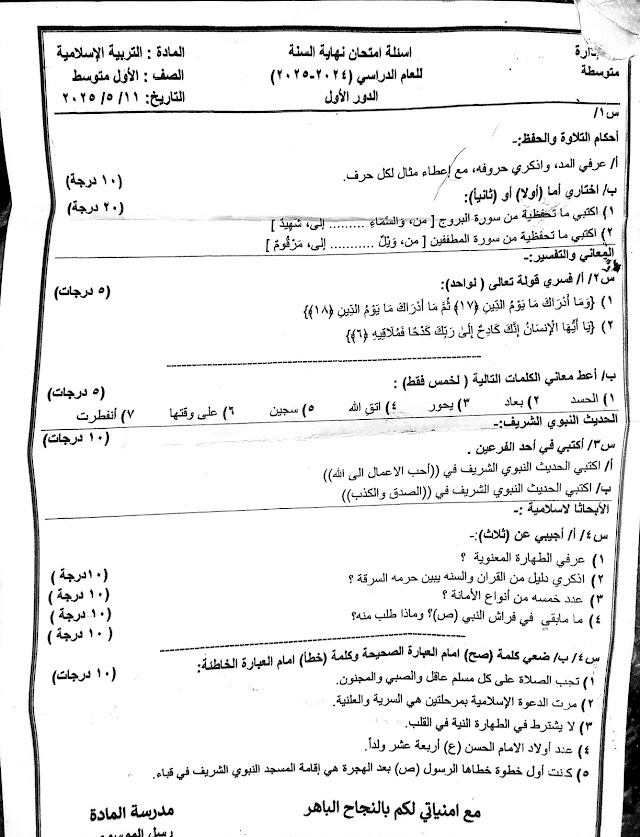 دارة
اسئلة امتحان نهاية السنة
المادة : التربية الإسلامية
متوسطة
للعام الدراسي (٢٠٢٤-٢٠٢٥)
الصف : الأول متوسط
الدور الأول
التاريخ: ١١/ ٥/ ٢٠٢٥
س١/
أحكام التلاوة والحفظ:-
أ/ عرفي المد، واذكري حروفه، مع إعطاء مثال لكل حرف. (١٠ درجة)
ب/ اختاري أما (أولا) أو (ثانياً): (٢٠ درجة)
١) اكتبي ما تحفظية من سورة البروج [ من، وَالسَّمَاءِ ......... إلى، شَهِيدٌ ]
٢) اكتبي ما تحفظية من سورة المطففين [ من، وَيْلٌ ........... إلى، مَرْقُومٌ ]
المعاني والتفسير:-
س٢/ أ/ فسري قولة تعالى ( لواحد): (٥ درجات)
١) {وَمَا أَدْرَاكَ مَا يَوْمُ الدِّينِ ﴿١٧﴾ ثُمَّ مَا أَدْرَاكَ مَا يَوْمُ الدِّينِ ﴿١٨﴾}
٢) {يَا أَيُّهَا الْإِنسَانُ إِنَّكَ كَادِحٌ إِلَىٰ رَبِّكَ كَدْحًا فَمُلَاقِيهِ ﴿٦﴾}
ب/ أعط معاني الكلمات التالية ( لخمس فقط) : (٥ درجات)
١) الحسد ٢) بعاد ٣) يحور ٤) اتقِ الله ٥) سجين ٦) على وقتها ٧) أنفطرت
الحديث النبوي الشريف:-
س٣/ أكتبي في أحد الفرعين . (١٠ درجات)
أ/ اكتبي الحديث النبوي الشريف في ((أحب الاعمال الى الله))
ب/ اكتبي الحديث النبوي الشريف في ((الصدق والكذب))
الأبحاثا لاسلامية :-
س٤/ أ/ أجيبي عن (ثلاث):-
١) عرفي الطهارة المعنوية ؟ (١٠درجة )
٢) اذكري دليل من القران والسنه يبين حرمه السرقة ؟ (١٠ درجة )
٣) عدد خمسه من أنواع الأمانة ؟ (١٠ درجة )
٤) ما مابقي في فراش النبي (ص)؟ وماذا طلب منه؟ (١٠ درجة )
س٤/ ب/ ضعي كلمة (صح) امام العبارة الصحيحة وكلمة (خطأ) امام العبارة الخاطئة: (١٠ درجات)
١) تجب الصلاة على كل مسلم عاقل والصبي والمجنون.
٢) مرت الدعوة الإسلامية بمرحلتين هي السرية والعلنية.
٣) لا يشترط في الطهارة النية في القلب.
٤) عدد أولاد الامام الحسن (ع) أربعة عشر ولداً.
٥) كانت أول خطوة خطاها الرسول (ص) بعد الهجرة هي إقامة المسجد النبوي الشريف في قباء.
مع امنياتي لكم بالنجاح الباهر
مدرسة المادة
رسل